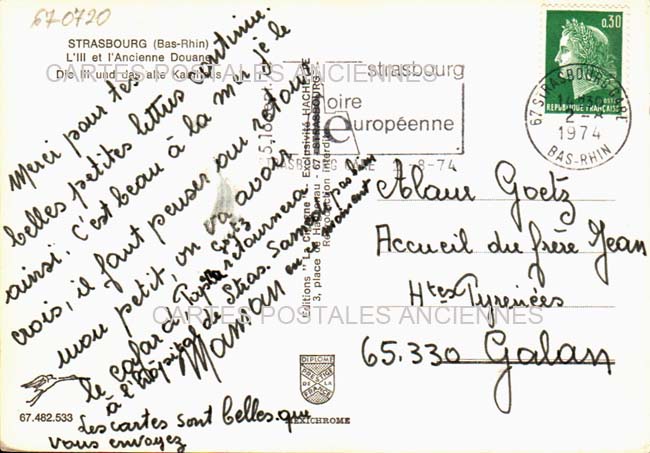 67-0720
STRASBOURG (Bas-Rhin)
L'Ill et l'Ancienne Douane
Die Ill und das alte Kaufhaus
CARTES POSTALES ANCIENNES
Merci pour tes
belles petites lettres continue.
ainsi. C'est beau à la mer je le
crois, il faut penser au retour
mon petit, on va avoir
le cafar à
retournera
à l'hôpital de Stras. Samedi
Maman en ce moment
Les cartes sont belles que
vous envoyez
67.482.533
MEXICHROME
DIPLOME
PRESTIGE
DE LA
FRANCE
Éditions "La Cigogne". Exclusivité HACHETTE
3, place de Haguenau - 67 - STRASBOURG
Reproduction Interdite
strasbourg
foire
européenne
STRASBOURG GARE
-8-74
0,30
REPUBLIQUE FRANÇAISE
67 STRASBOURG GARE
1974
BAS-RHIN
Alain Goetz
Accueil du frère Jean
Htes Pyrenées
65.330 Galan
CARTES POSTALES ANCIENNES